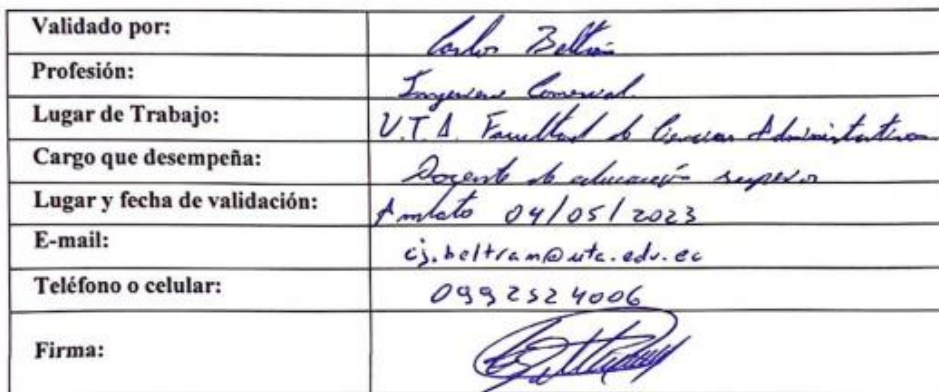 Validado por: Carlos Beltrán
Profesión: Ingeniero Comercial.
Lugar de Trabajo: U.T.A. Facultad de Ciencias Administrativas
Cargo que desempeña: Docente de educación superior
Lugar y fecha de validación: Ambato 04/05/2023
E-mail: cj.beltran@uta.edu.ec
Teléfono o celular: 0992524006
Firma: